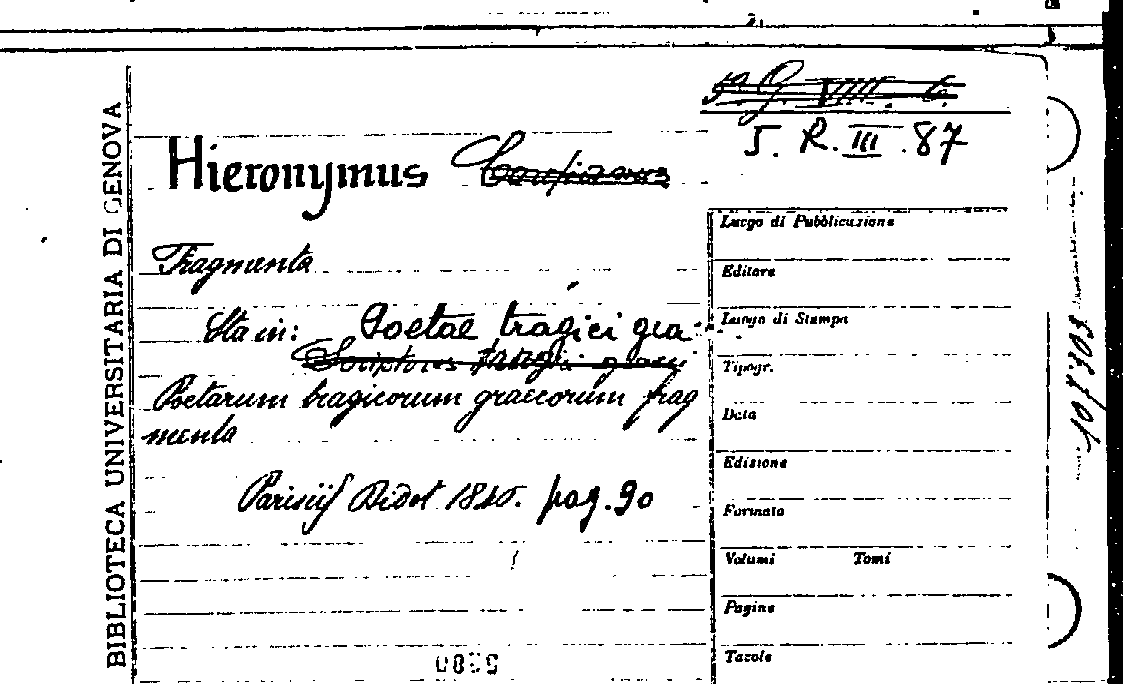 BIBLIOTECA UNIVERSITARIA DI GENOVA
5. R. III. 87
Hieronymus
Fragmenta
Sta in: Poetae tragici grae
Poetarum tragicorum graecorum frag
menta
Parisiis Didot pag. 90
Luogo di Pubblicazione
Editore
Luogo di Stampa
Tipogr.
Data
Edizione
Formato
Volumi Tomi
Pagine
Tavole